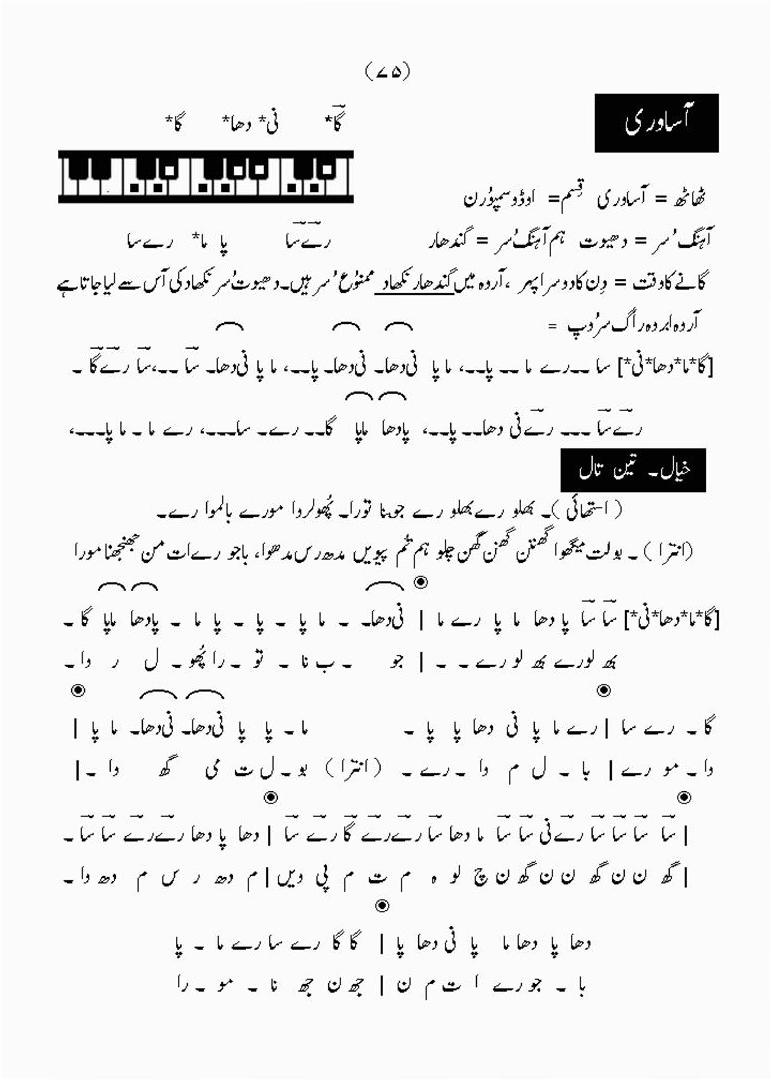 (۷۵)
آساوری
گا* نی* دھا* گا*
ٹھاٹھ = آساوری قِسم= اوڈوسمپُورن
آہنگ سُر = دھیوت ہم آہنگ سُر = گندھار
رےسا پا ما* رےسا
گانے کا وقت = دِن کا دوسرا پہر ، آردہ میں گندھار نکھاد ممنُوع سُر ہیں۔ دھیوت سُر نکھاد کی آس سے لیا جاتا ہے
آردہ ابردہ راگ سرُوپ =
[گا*ما*دھا*نی*] سا ۔۔رے ما ۔۔ پا۔۔، ما پا نی دھا۔ نی دھا۔ پا۔۔، ما پا نی دھا۔ سا ۔۔،سا رےگا ۔
رےسا ۔۔۔ رےنی دھا۔۔ پا۔۔، پادھا ماپا گا۔۔ رے۔ سا۔۔۔، رے ما ۔ ما پا۔۔۔،
خیال۔ تین تال
(استھائی)۔ بھلو رے بھلو رے جوبنا تورا۔ پُھولروا مورے بالموا رے۔
(انترا) ۔ بولت میگھوا گھننن گھنن گھن چلو ہم تم پیویں مدھ رس مدھوا، باجو رے ات من جھنجھنا مورا
[گا*ما*دھا*نی*] سا سا پا دھا ما پا رے ما | نی دھا۔ ۔ ما پا ۔ پا ۔ پا ما ۔ پادھا ماپا گا ۔
بھ لو رے بھ لو رے ۔ ۔ | جو ۔ ب نا ۔ تو ۔ را پُھو ۔ ل ر وا ۔
گا ۔ رے سا | رے ما پا نی دھا پا پا ۔ ما ۔ پا پا نی دھا۔ نی دھا۔ ما پا |
وا ۔ مو رے | با ۔ ل م وا ۔ رے ۔ (انترا) بو ۔ ل ت می گھ وا ۔|
| سا سا سا سا رےنی سا سا ما دھا سا رےرے گا رے سا | دھا پا دھا رےرے رے سا سا ۔
| گھ ن ن گھ ن ن گھ ن چ لو ہ م ت م پی ویں | م دھ ر س م دھ وا ۔
دھا پا دھا ما پا نی دھا پا | گا گا رے سا رے ما ۔ پا
با ۔ جو رے ا ت م ن | جھ ن جھ نا ۔ مو ۔ را